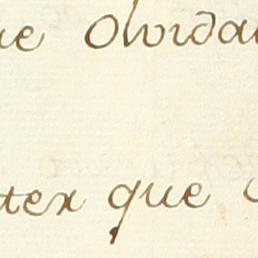 ue olvida
ter que